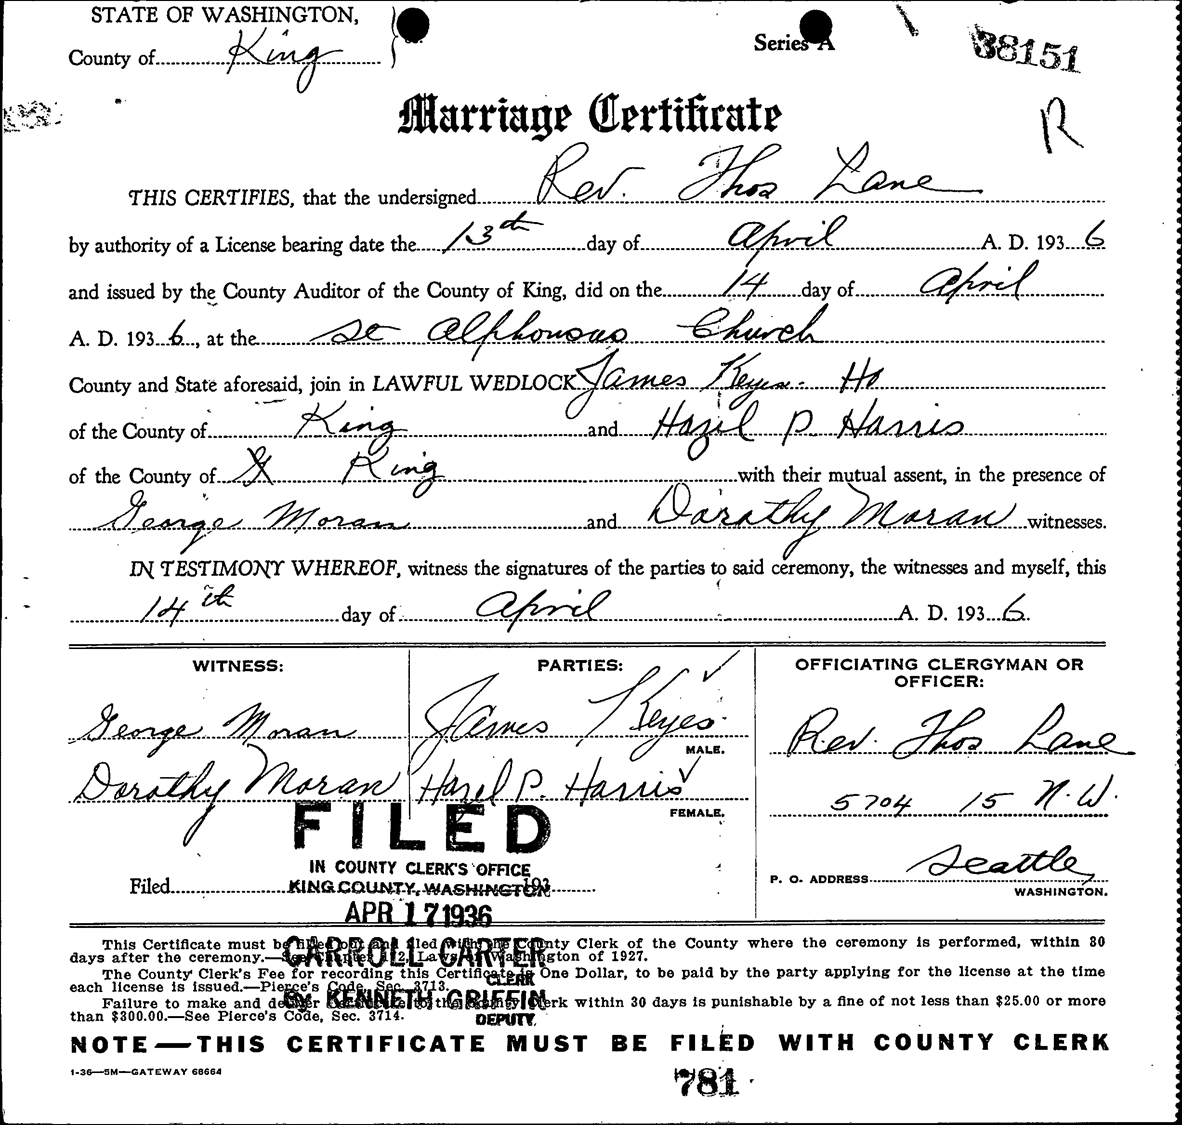 STATE OF WASHINGTON,
County of King
Series A
38151
R
Marriage Certificate
THIS CERTIFIES, that the undersigned Rev. Thos Lane
by authority of a License bearing date the 13th day of April A. D. 1936
and issued by the County Auditor of the County of King, did on the 14 day of April
A. D. 1936, at the St Alphonsus Church
County and State aforesaid, join in LAWFUL WEDLOCK James Keyes. Ho
of the County of King and Hazel P Harris
of the County of King with their mutual assent, in the presence of
George Moran and Dorathy Moran witnesses.
IN TESTIMONY WHEREOF, witness the signatures of the parties to said ceremony, the witnesses and myself, this
14th day of April A. D. 1936.
WITNESS: PARTIES: OFFICIATING CLERGYMAN OR
OFFICER:
George Moran James Keyes. Rev. Thos Lane
MALE.
Dorathy Moran Hazel P. Harris 5704 15 N.W.
FEMALE.
FILED
IN COUNTY CLERK'S OFFICE
Filed KING COUNTY, WASHINGTON 193
P. O. ADDRESS Seattle
WASHINGTON.
APR 17 1936
CARROLL CARTER
CLERK
By KENNETH GRIFFIN
DEPUTY
This Certificate must be filled out and filed with the County Clerk of the County where the ceremony is performed, within 30
days after the ceremony.—See Chapter 172, Laws of Washington of 1927.
The County Clerk's Fee for recording this Certificate is One Dollar, to be paid by the party applying for the license at the time
each license is issued.—Pierce's Code, Sec. 3713.
Failure to make and deliver to the County Clerk within 30 days is punishable by a fine of not less than $25.00 or more
than $300.00.—See Pierce's Code, Sec. 3714.
NOTE—THIS CERTIFICATE MUST BE FILED WITH COUNTY CLERK
1-36—5M—GATEWAY 68664
781